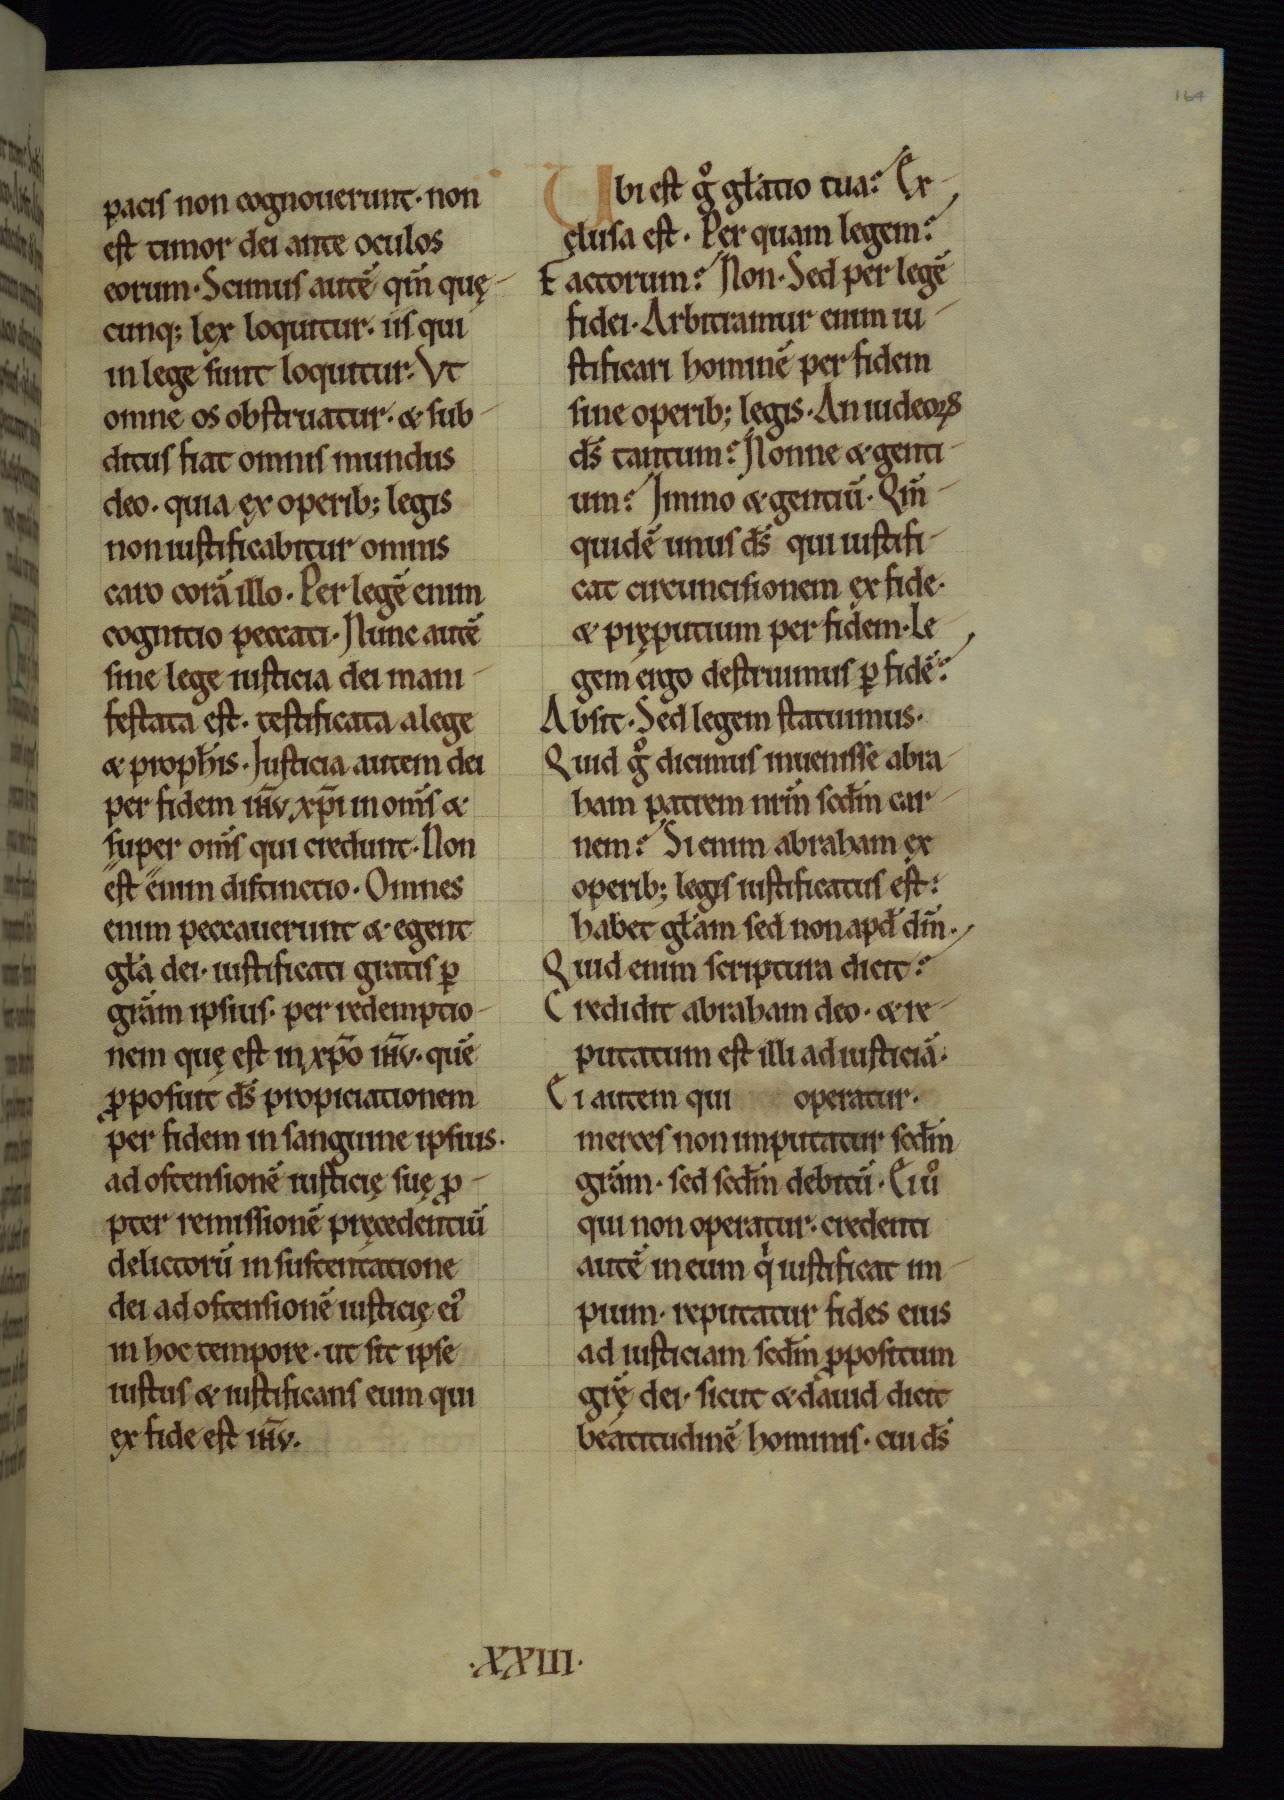 164
pacis non cognouerunt · non
est timor dei ante oculos
eorum · Scimus autē qm̄ quę-
cunq; lex loquitur · iis qui
in lege sunt loquitur · Vt
omne os obstruatur · & sub-
ditus fiat omnis mundus
deo · quia ex operib; legis
non iustificabitur omnis
caro corā illo · Per legē enim
cognitio peccati · Nunc autē
sine lege iusticia dei mani-
festata est · testificata a lege
& proph̄is · Iusticia autem dei
per fidem ih̄v xp̄i in om̄s &
super om̄s qui credunt · Non
est enim distinctio · Omnes
enim peccauerunt & egent
gl̄a dei · iustificati gratis ꝑ
grām ipsius · per redemptio-
nem quę est in xp̄o ih̄v · quē
ꝓposuit d̄s propiciationem
per fidem in sanguine ipsius ·
ad ostensionē iusticię suę ꝓ-
pter remissionē pręcedentiū
delictorū in sustentatione
dei ad ostensionē iusticię eiꝰ
in hoc tempore · ut sit ipse
iustus & iustificans eum qui
ex fide est ih̄v.
Ubi est gͦ gl̄atio tua? Ex-
clusa est · Per quam legem?
Factorum? Non · Sed per legē
fidei · Arbitramur enim iu-
stificari hominē per fidem
sine operib; legis · An iudeoꝝ
d̄s tantum? Nonne & genti-
um? Immo & gentiū · Qm̄-
quidē unus d̄s qui iustifi-
cat circuncisionem ex fide ·
& pręputium per fidem · Le-
gem ergo destruimus ꝑ fidē?
Absit · Sed legem statuimus ·
Quid gͦ dicimus inuenisse abra-
ham patrem nr̄m scd̄m car-
nem? Si enim abraham ex
operib; legis iustificatus est ·
habet gl̄am sed non apd̄ dm̄ ·
Quid enim scriptura dicit?
Credidit abraham deo · & re-
putatum est illi ad iusticiā ·
Ei autem qui operatur ·
merces non imputatur scd̄m
grām · sed scd̄m debitū · Ei uͦ
qui non operatur · credenti
autē in eum qͥ iustificat im-
pium · reputatur fides eius
ad iusticiam scd̄m ꝓpositum
gr̄ę dei · sicut & dauid dicit
beatitudinē hominis · cui d̄s
·XXIII·